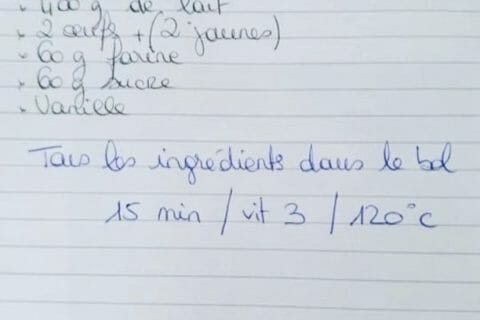 - 400 g de lait
- 2 œufs + (2 jaunes)
- 60 g farine
- 60 g sucre
- Vanille
Tous les ingrédients dans le bol
15 min / vit 3 / 120°c